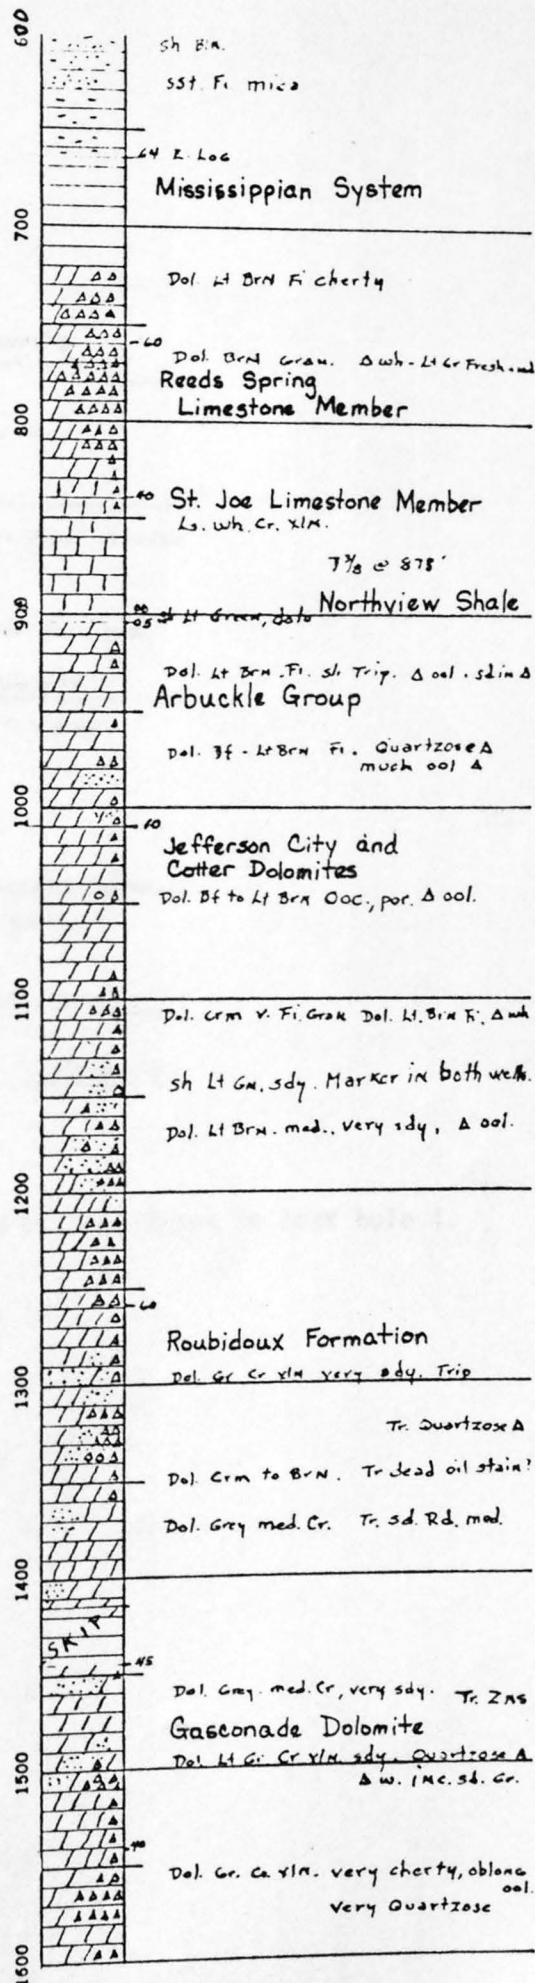 600
sh Brn.
sst. Fi mica
64 E. Log
Mississippian System
700
Dol. Lt Brn Fi cherty
60
Dol. Brn Gran. Δ wh - Lt Gr Fresh
Reeds Spring
Limestone Member
800
40
St. Joe Limestone Member
Ls. wh. Cr. xln.
7 5/8 @ 875'
Northview Shale
900
00
05 sh Lt Green, dolo
Dol. Lt Brn. Fi. sli Trip. Δ ool. sd in Δ
Arbuckle Group
Dol. Bf - Lt Brn Fi. Quartzose Δ
much ool Δ
1000
10
Jefferson City and
Cotter Dolomites
Dol. Bf to Lt Brn Ooc., por. Δ ool.
1100
Dol. Crm v. Fi. Gran Dol. Lt. Brn Fi. Δ wh
sh Lt Gn, sdy. Marker in both wells.
Dol. Lt Brn. med., very sdy, Δ ool.
1200
60
Roubidoux Formation
Dol. Gr Cr xln very sdy. Trip
1300
Tr. Quartzose Δ
Dol. Crm to Brn. Tr dead oil stain?
Dol. Grey med. Cr. Tr. sd. Rd. med.
1400
SKIP
45
Dol. Grey. med. Cr, very sdy. Tr. ZnS
Gasconade Dolomite
Dol Lt Gr Cr xln. sdy. Quartzose Δ
1500
Δ w. inc. sd. Gr.
40
Dol. Gr. Co. xln. very cherty, oblong
ool.
very Quartzose
1600